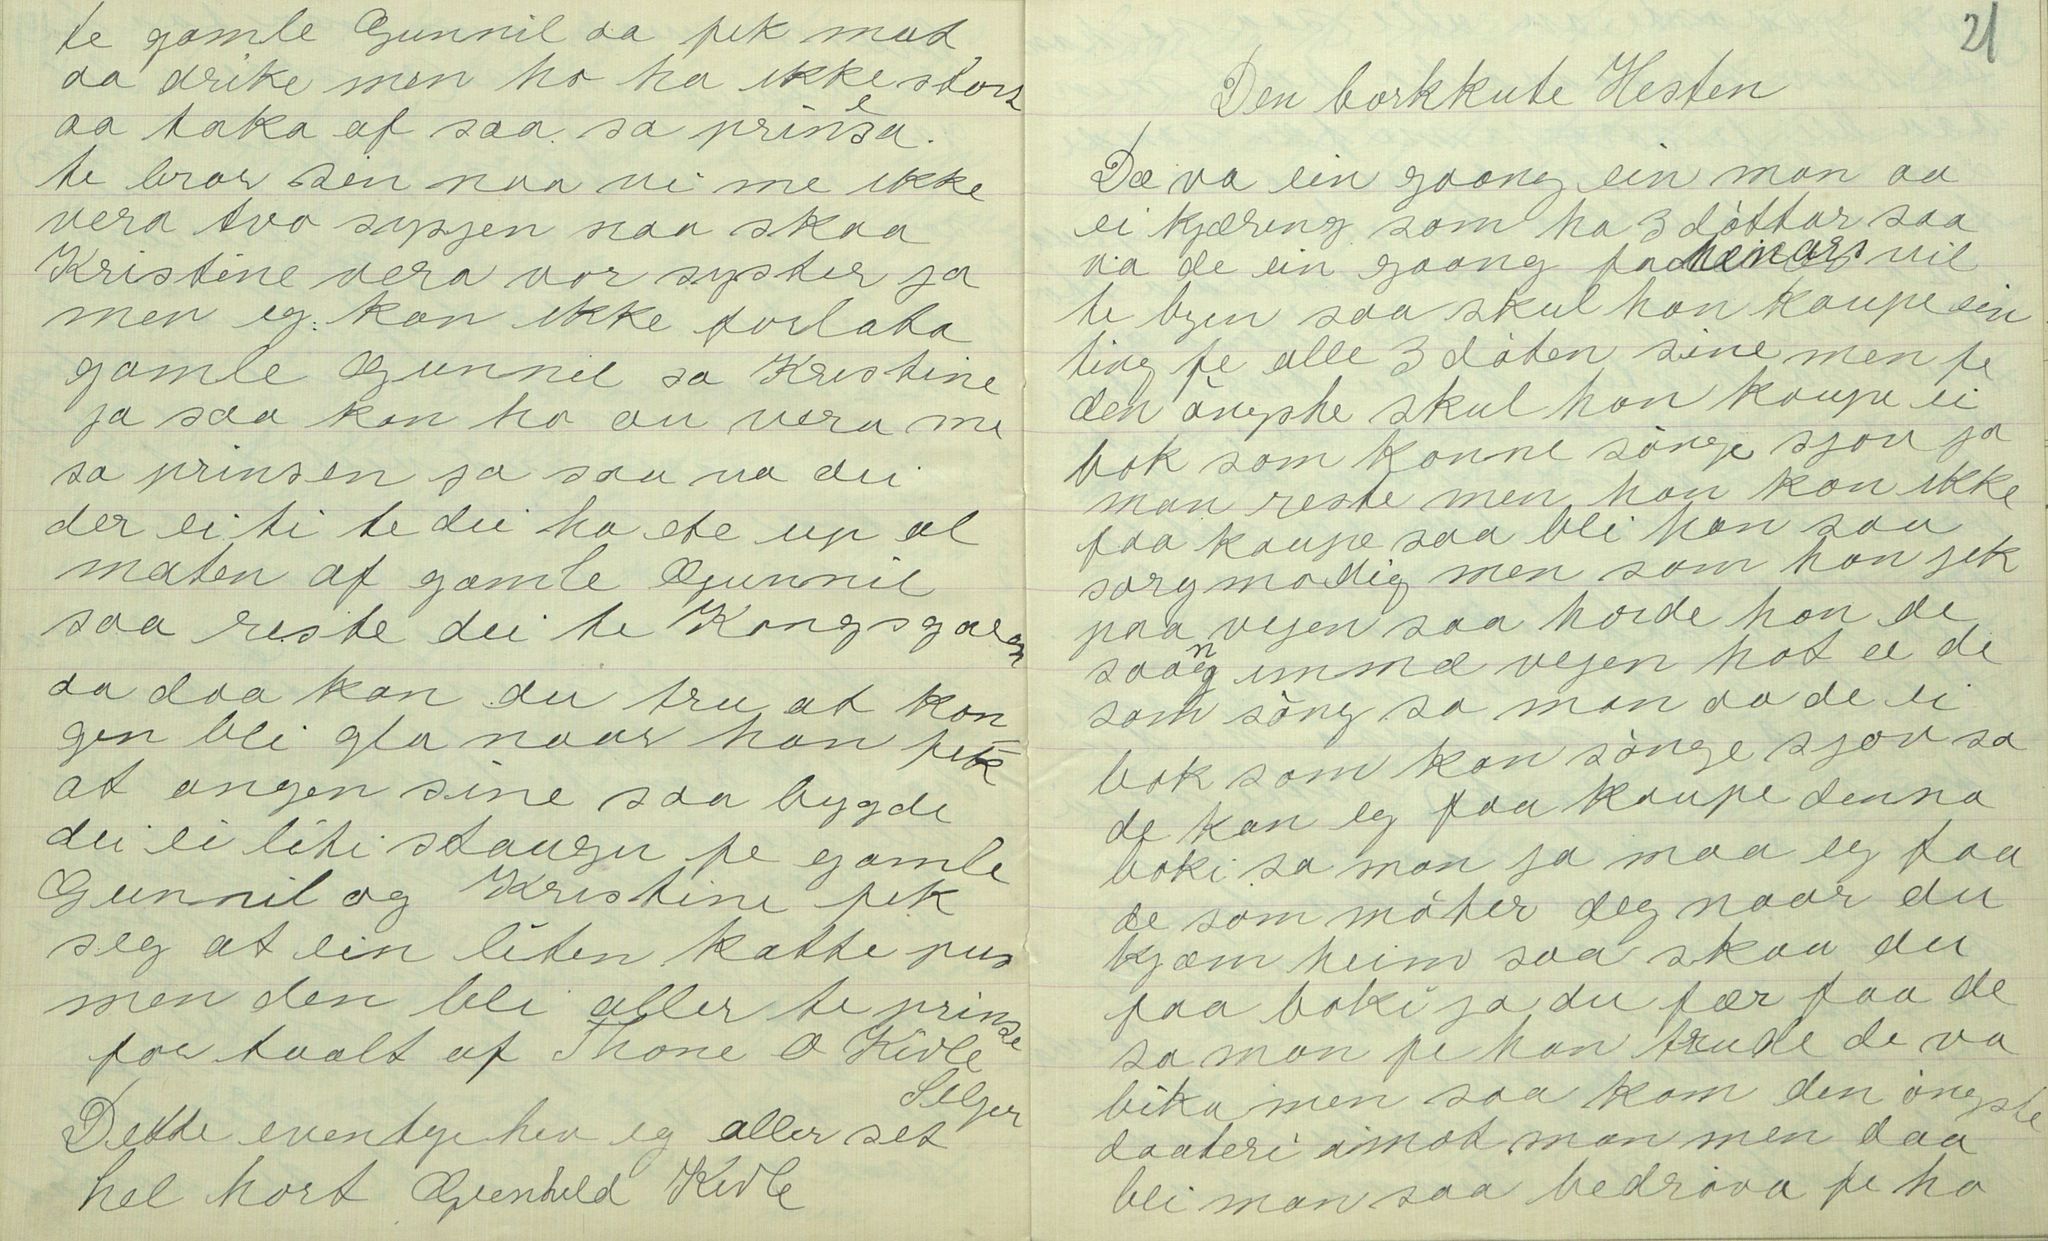 te gamle Gunnil aa fek mat
aa drike men ho ha ikke stort
aa taka af saa. sa prinsa.
te bror sin naa vi me ikke
vera tvo sysjen naa skaa
Kristine vera vor syster ja
men eg kan ikke forlata
gamle Gunnil sa Kristine
ja saa kan ho au vera me
sa prinsen ja saa va dei
der ei ti te dei ha ete up al
maten af gamle Gunnil
saa reste dei te Kongsgaren
aa daa kan du tru at kon-
gen bli gla naar han fek
at ongen sine saa bygde
dei ei liti staugu fe gamle
Gunnil og Kristine fek
seg at ein liten katte pus
men den bli aller te prinse
for taalt af Thone O Kivle
Seljor
Dette eventye hev eg aller set
hel hort Gunhild Kivle
21
Den borkkute Hesten
De va ein goong ein man aa
ei kjæring som ha 3 dòttar saa
va de ein goong fa henars vil
te byen saa skul han kaupe ein
ting fe alle 3 dòten sine men fe
den òngste skul han kaupe ei
bok som konne sònge sjov ja
man reste men han kon ikke
faa kaupe saa bli han saa
sorgmodig men som han jek
paa vejen saa horde han de
saang imma vejen hot æ de
som sòng sa man aa de ei
bok som kan sònge sjov sa
de kan eg faa kaupe denna
boki sa man ja maa eg faa
de som mòter deg naar du
kjæm heim saa skaa du
faa boki ja du fær faa de
sa man fe han trude de va
bika men saa kom den òngste
daateri aimot man men daa
bli man saa bedròva fe ho